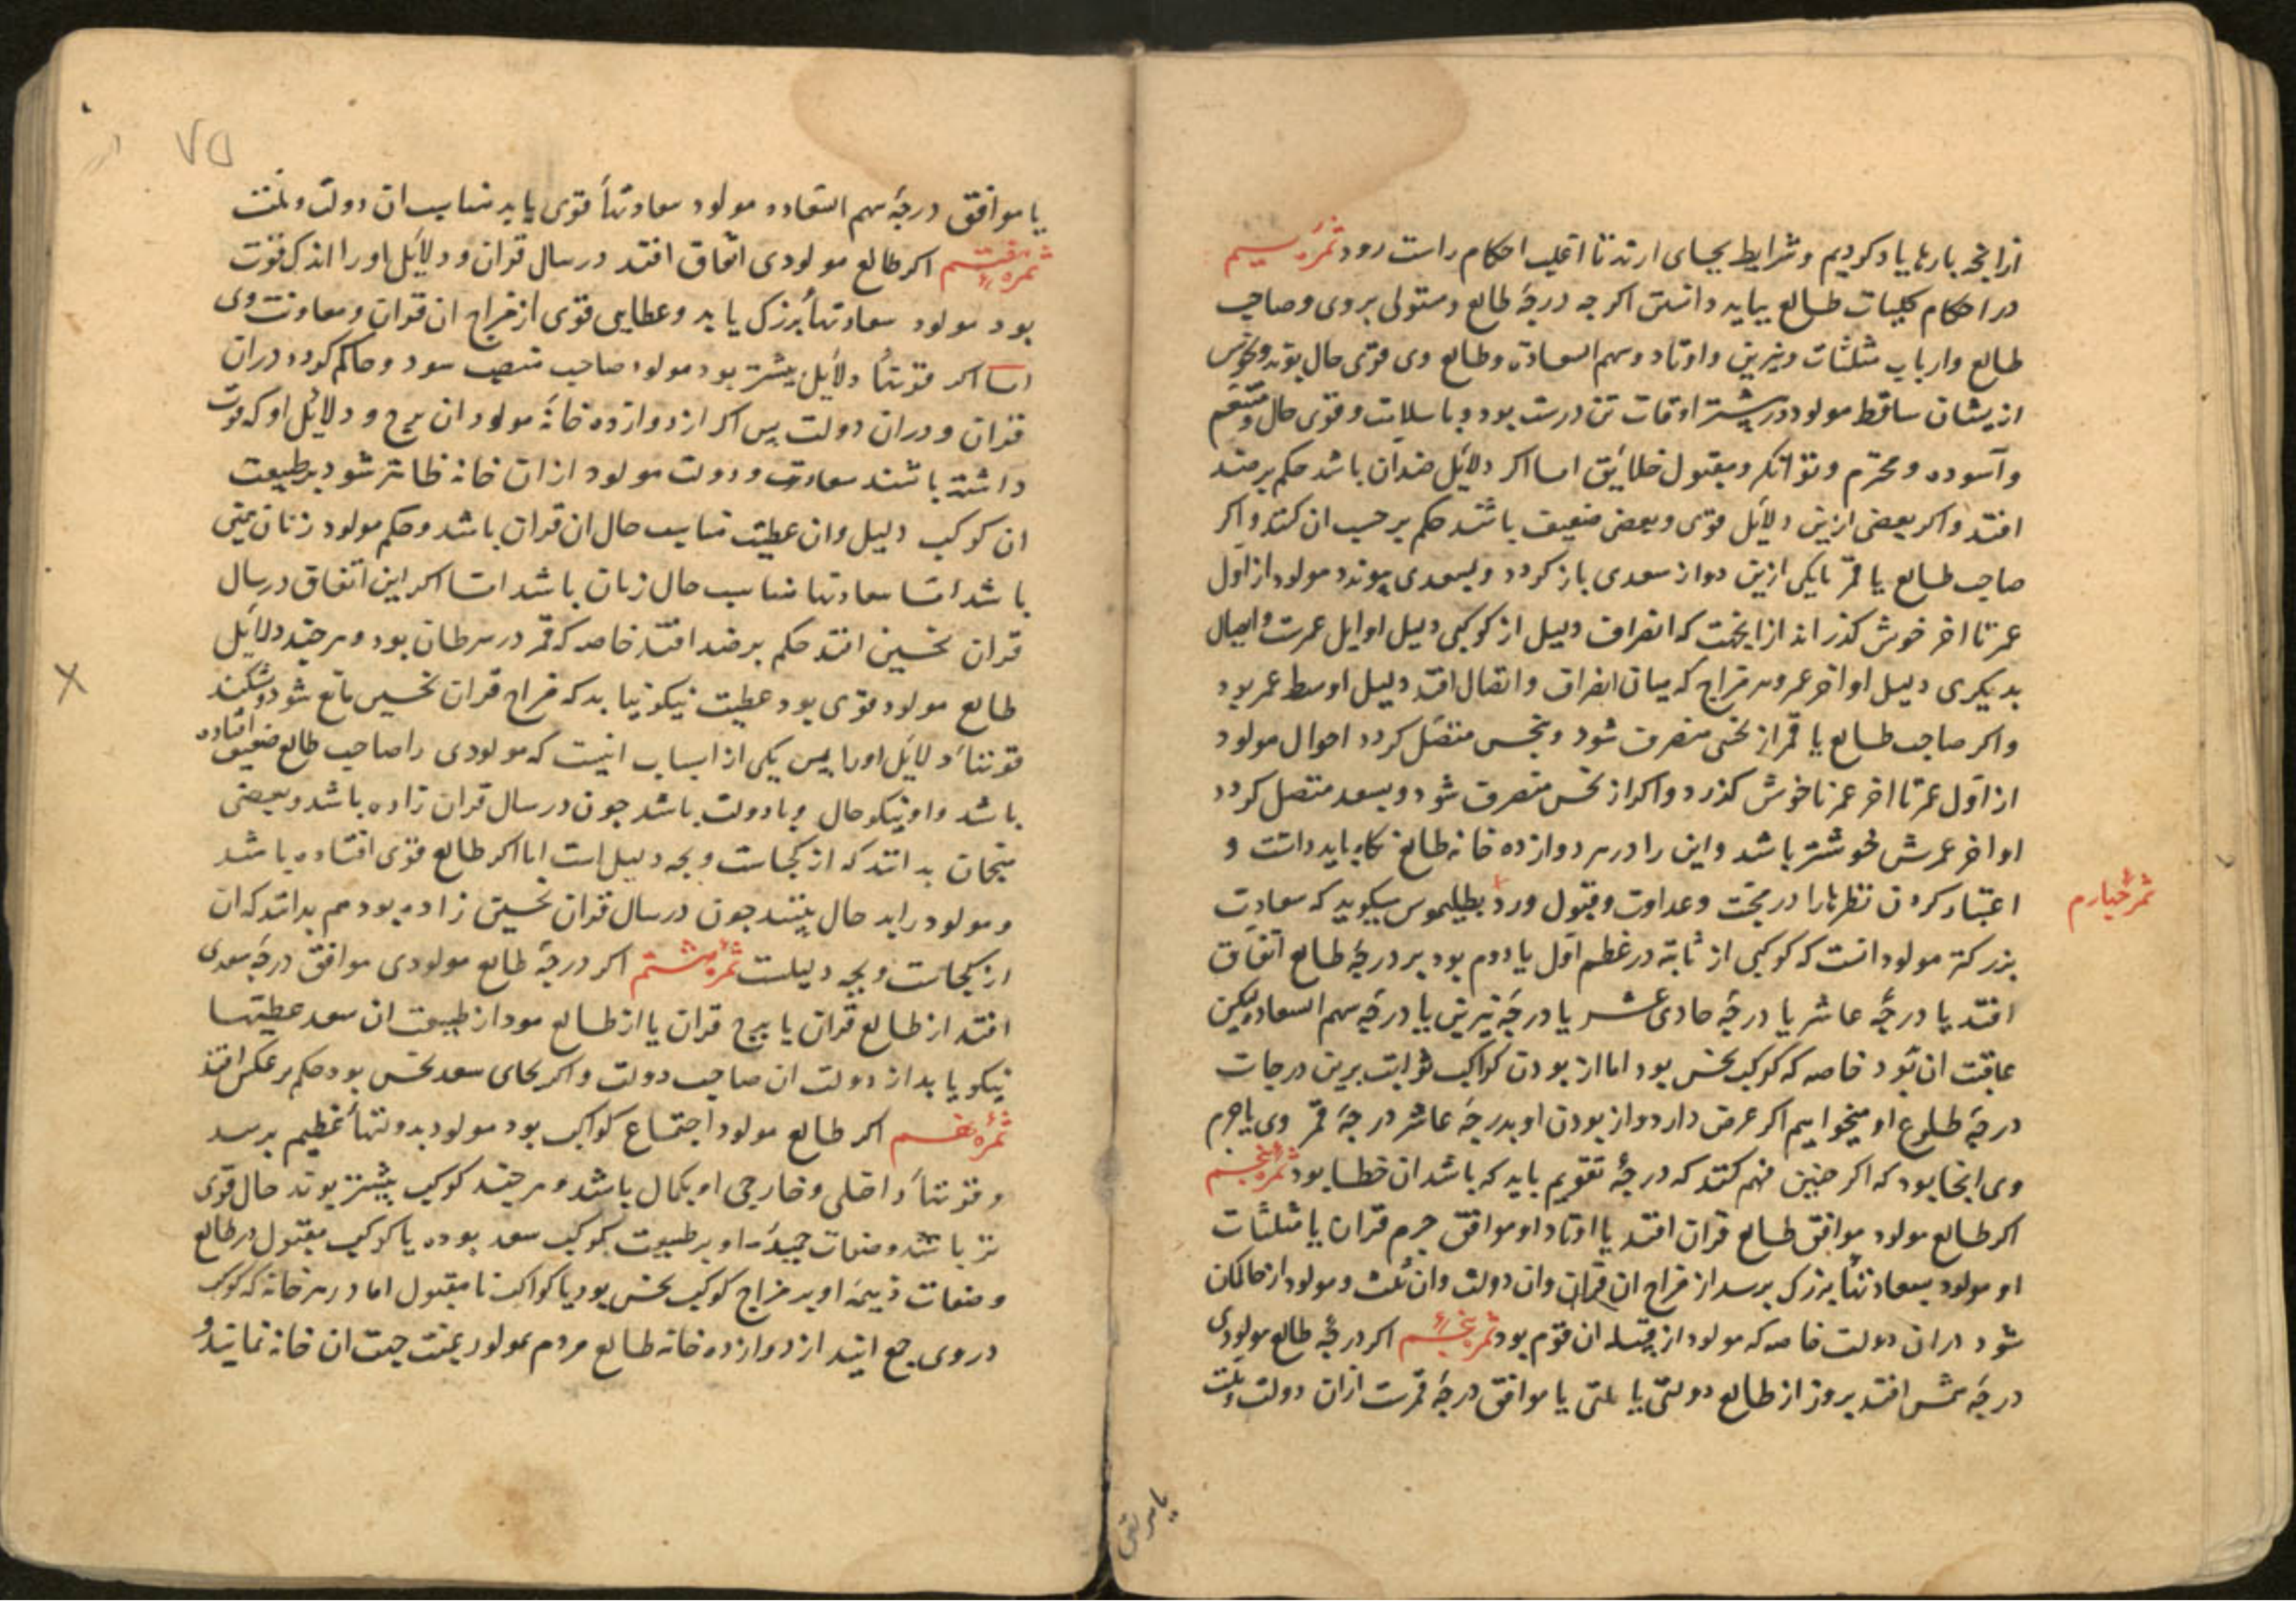 ازانچه بارها یاد کردیم و شرایط بجای ارند تا اغلب احکام راست رود ثمره سیم
در احکام کلیات طالع بباید دانستن اکر جه درجهٔ طالع و مستولی بر وی و صاحب
طالع و ارباب مثلثات و نیرین و اوتاد و سهم السعادة و طالع وی قوی حال بوند و نحوس
ازیشان ساقط مولود در بیشتر اوقات تن درست بود و با سلامت و قوی حال و متنعم
و آسوده و محترم و توانکر و مقبول خلایق اما اکر دلائل ضد ان باشد حکم بر ضد
افتد و اکر بعضی ازین دلائل قوی و بعضی ضعیف باشد حکم بر حسب ان کنند و اکر
صاحب طالع یا قمر یا یکی ازین دو از سعدی باز کردد و بسعدی پیوندد مولود از اول
عمر تا اخر خوش کذراند از ایجهت که انصراف دلیل از کوکبی دلیل اوایل عمرست و اتصال
بدیکری دلیل اواخر عمر و هر مزاج که میان انصراف و اتصال افتد دلیل اوسط عمر بود
و اکر صاحب طالع یا قمر از نحسی منصرف شود و بنحس متصل کردد احوال مولود
از اول عمر تا اخر عمر ناخوش کذرد و اکر از نحس منصرف شود و بسعد متصل کردد
اواخر عمرش خوشتر باشد و این را در هر دوازده خانه طالع نکاه باید داشت و
اعتبار کردن نظرها را در محبت و عداوت و قبول و رد بطلیموس میکوید که سعادت
ثمره چهارم
بزرکتر مولود انست که کوکبی از ثابته در عظم اول یا دوم بود بر درجهٔ طالع اتفاق
افتد یا درجهٔ عاشر یا درجهٔ حادی عشر یا درجهٔ نیرین یا درجهٔ سهم السعاده لیکن
عاقبت ان بود خاصه که کوکب نحس بود اما از بودن کواکب ثوابت برین درجات
درجهٔ طلوع او میخواهیم اکر عرض دارد و از بودن او بدرجهٔ عاشر درجهٔ قمر وی با جرم
وی انجا بود که اکر جنین فهم کنند که درجهٔ تقویم باید که باشد ان خطا بود ثمره پنجم
اکر طالع مولود موافق طالع قران افتد یا اوتاد او موافق جرم قران یا مثلثات
او مولود بسعادتها بزرک برسد از مزاج ان قران و ان دولت و ان ملت و مولود از حاکمان
شود در ان دولت خاصه که مولود از قبیله ان قوم بود اکر درجهٔ طالع مولودی
درجهٔ شمس افتد بروز از طالع دولتی یا ملتی یا موافق درجهٔ قمرست ازان دولت و ملت
۷۵
یا موافق درجهٔ سهم السعاده مولود سعادتها قوی یابد مناسب ان دولت و ملت
ثمره هفتم اکر طالع مولودی اتفاق افتد در سال قران و دلایل او را اندک قوت
بود مولود سعادتها بزرک یابد و عطایی قوی از مزاج ان قران و معاونت وی
اما اکر قوتها دلائل بیشتر بود مولود صاحب منصب شود و حاکم کردد در ان
قران و در ان دولت پس اکر از دوازده خانهٔ مولود ان برج و دلائل او که قوت
داشته باشند سعادت و دولت مولود از ان خانه ظاهر شود بر طبیعت
ان کوکب دلیل و ان عطیت مناسب حال ان قران باشد و حکم مولود زنان همین
باشد اما سعادتها مناسب حال زنان باشد اما اکر این اتفاق در سال
قران نحسین افتد حکم بر ضد افتد خاصه که قمر در سرطان بود و هر چند دلائل
طالع مولود قوی بود عطیت نیکو نیابد که مزاج قران نحسین مانع شود و بشکند
قوتها دلایل او را پس یکی از اسباب اینست که مولودی را صاحب طالع ضعیف افتاده
باشد و او نیکو حال و با دولت باشد جون در سال قران زاده باشد و بعضی
منجمان بدانند که از کجاست و بچه دلیل است اما اکر طالع قوی افتاده باشد
و مولود را بد حال بینند جون در سال قران نحسین زاده بود هم بدانند که ان
از کجاست و بچه دلیلست ثمره هشتم اکر درجهٔ طالع مولودی موافق درجهٔ سعدی
افتد از طالع قران یا برج قران یا از طالع مود از طبیعت ان سعد عطیتها
نیکو یابد از دولت ان صاحب دولت و اکر بجای سعد نحس بود حکم بر عکس افتد
ثمره نهم اکر طالع مولود اجتماع کواکب بود مولود بدولتها عظیم برسد
و قوتها داخلی و خارجی او بکمال باشد و هر چند کوکب بیشتر بوند حال قوی
تر باشد و صفات حمیدهٔ او بر طبیعت کوکب سعد بوده یا کوکب مقبول در طالع
و صفات ذمیمهٔ او بر مزاج کوکب نحس بود یا کواکب نا مقبول اما در هر خانه که کوکب
در وی جمع ایند از دوازده خانه طالع مردم مولود بمنت جهت ان خانه نمایند و